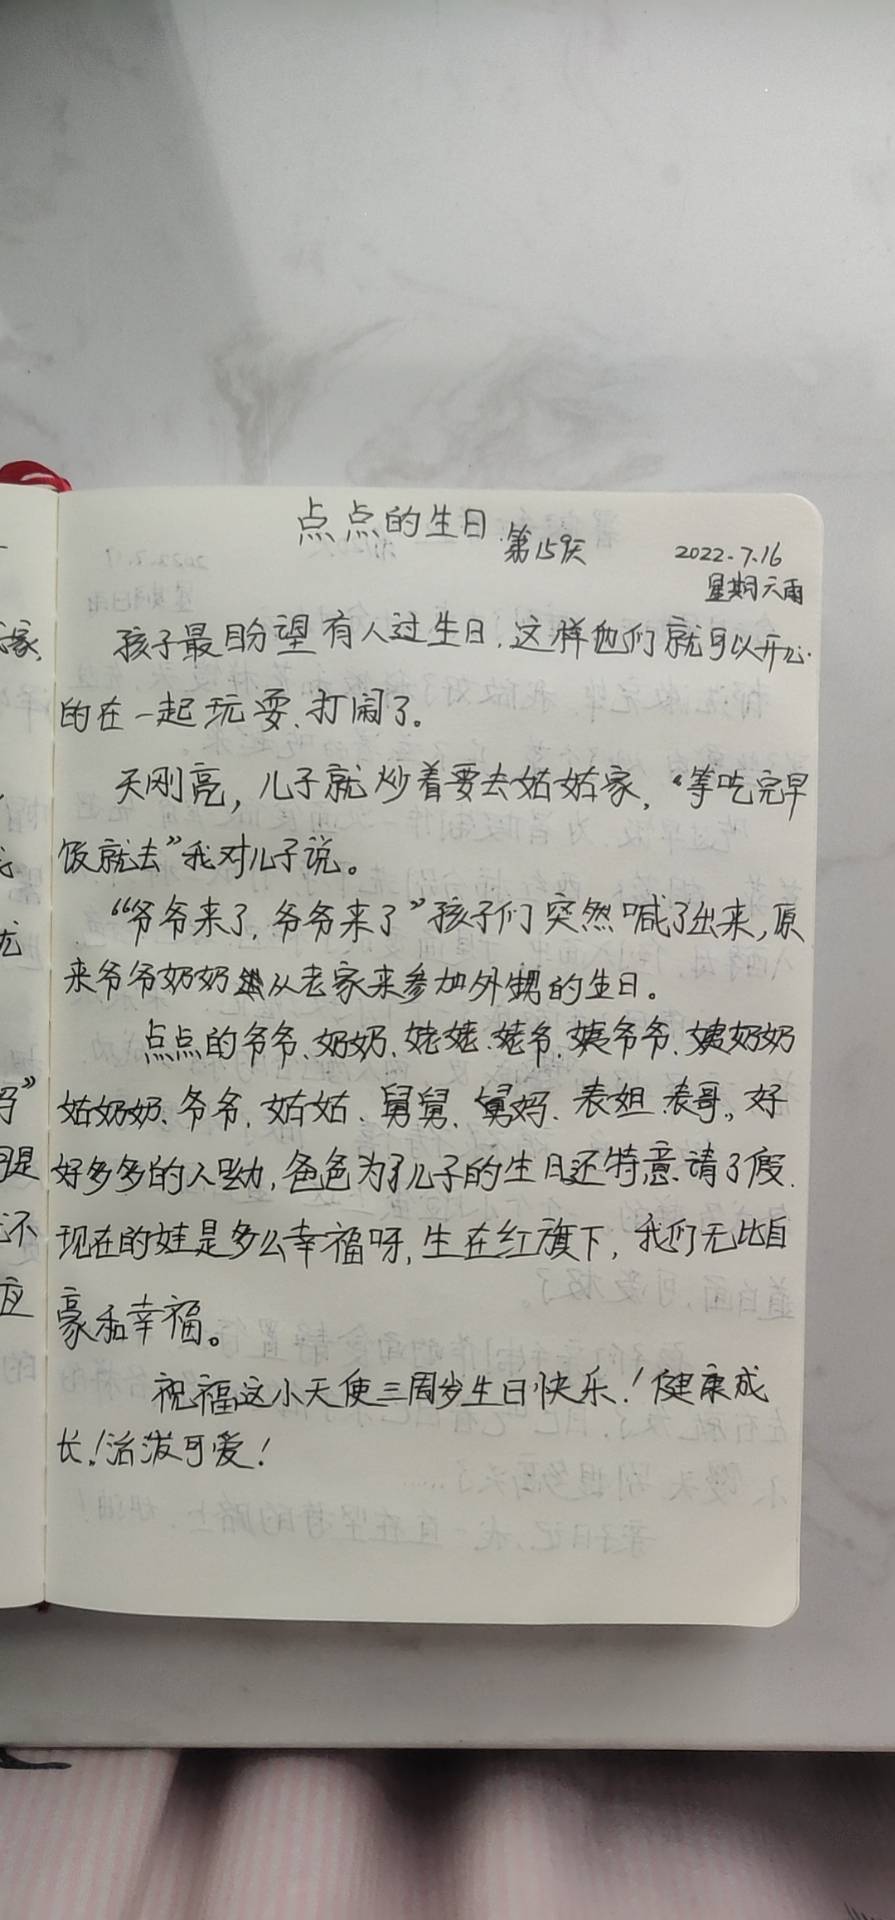 点点的生日
第159天
2022.7.16
星期六雨
孩子最盼望有人过生日,这样他们就可以开心
的在一起玩耍、打闹了。
天刚亮,儿子就炒着要去姑姑家,“等吃完早
饭就去”我对儿子说。
“爷爷来了,爷爷来了”孩子们突然喊了出来,原
来爷爷奶奶从老家来参加外甥的生日。
点点的爷爷、奶奶、姥姥、姥爷、姨爷爷、姨奶奶
姑奶奶、爷爷、姑姑、舅舅、舅妈、表姐、表哥。好
好多多的人呦,爸爸为了儿子的生日还特意请了假.
现在的娃是多么幸福呀,生在红旗下,我们无比自
豪和幸福。
祝福这小天使三周岁生日快乐!健康成
长!活泼可爱!